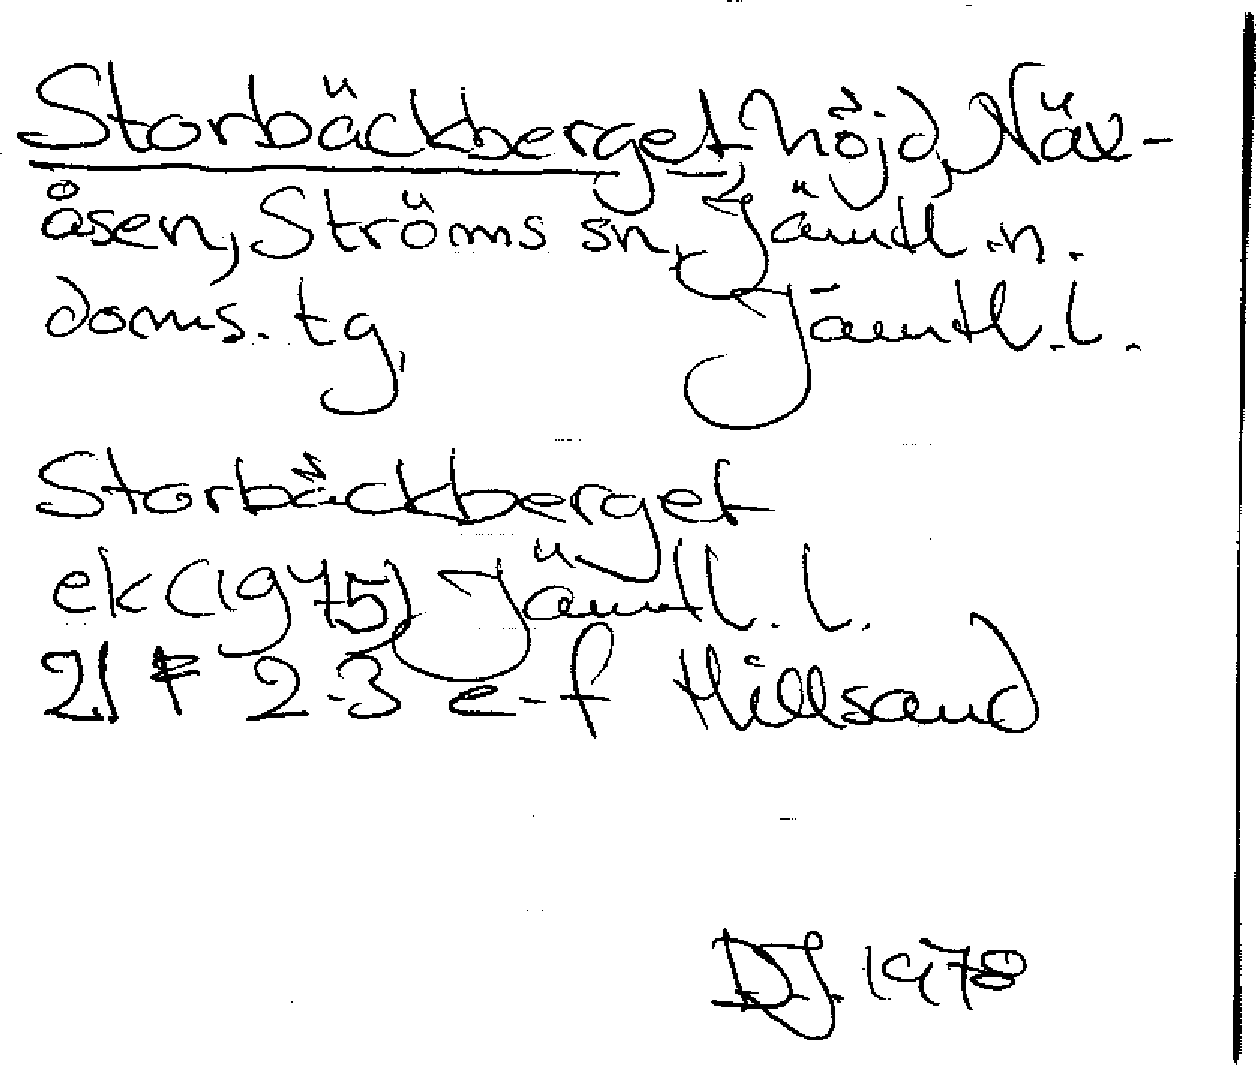 Storbäckberget, höjd, Näx-
åsen, Ströms sn, Jämtl.n.
doms.tg, Jämtl.l.
Storbäckberget
ek (1975) Jämtl.l.
21 F 2-3 e-f Hillsand
D.J. 1978